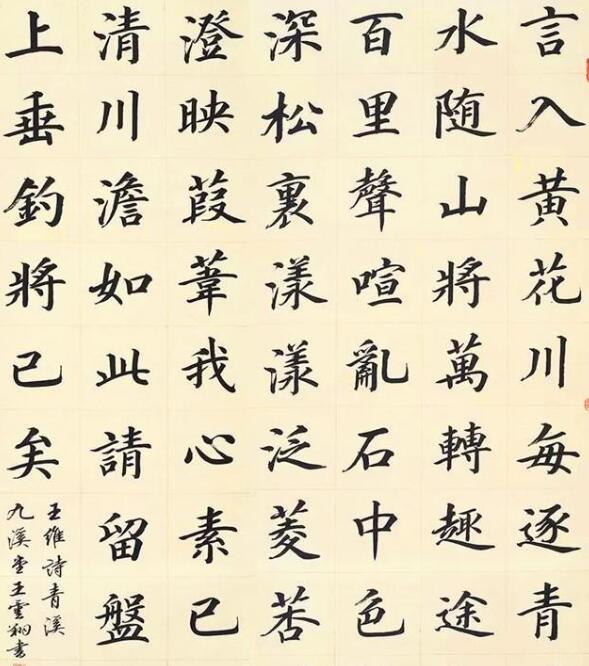 言入黄花川每逐青
水随山將萬轉趣途
百里聲喧亂石中色
深松裏漾漾泛菱莕
澄映葭葦我心素已
清川澹如此請留盤
上垂釣將已矣
王維詩青溪
九溪堂王雲翔書